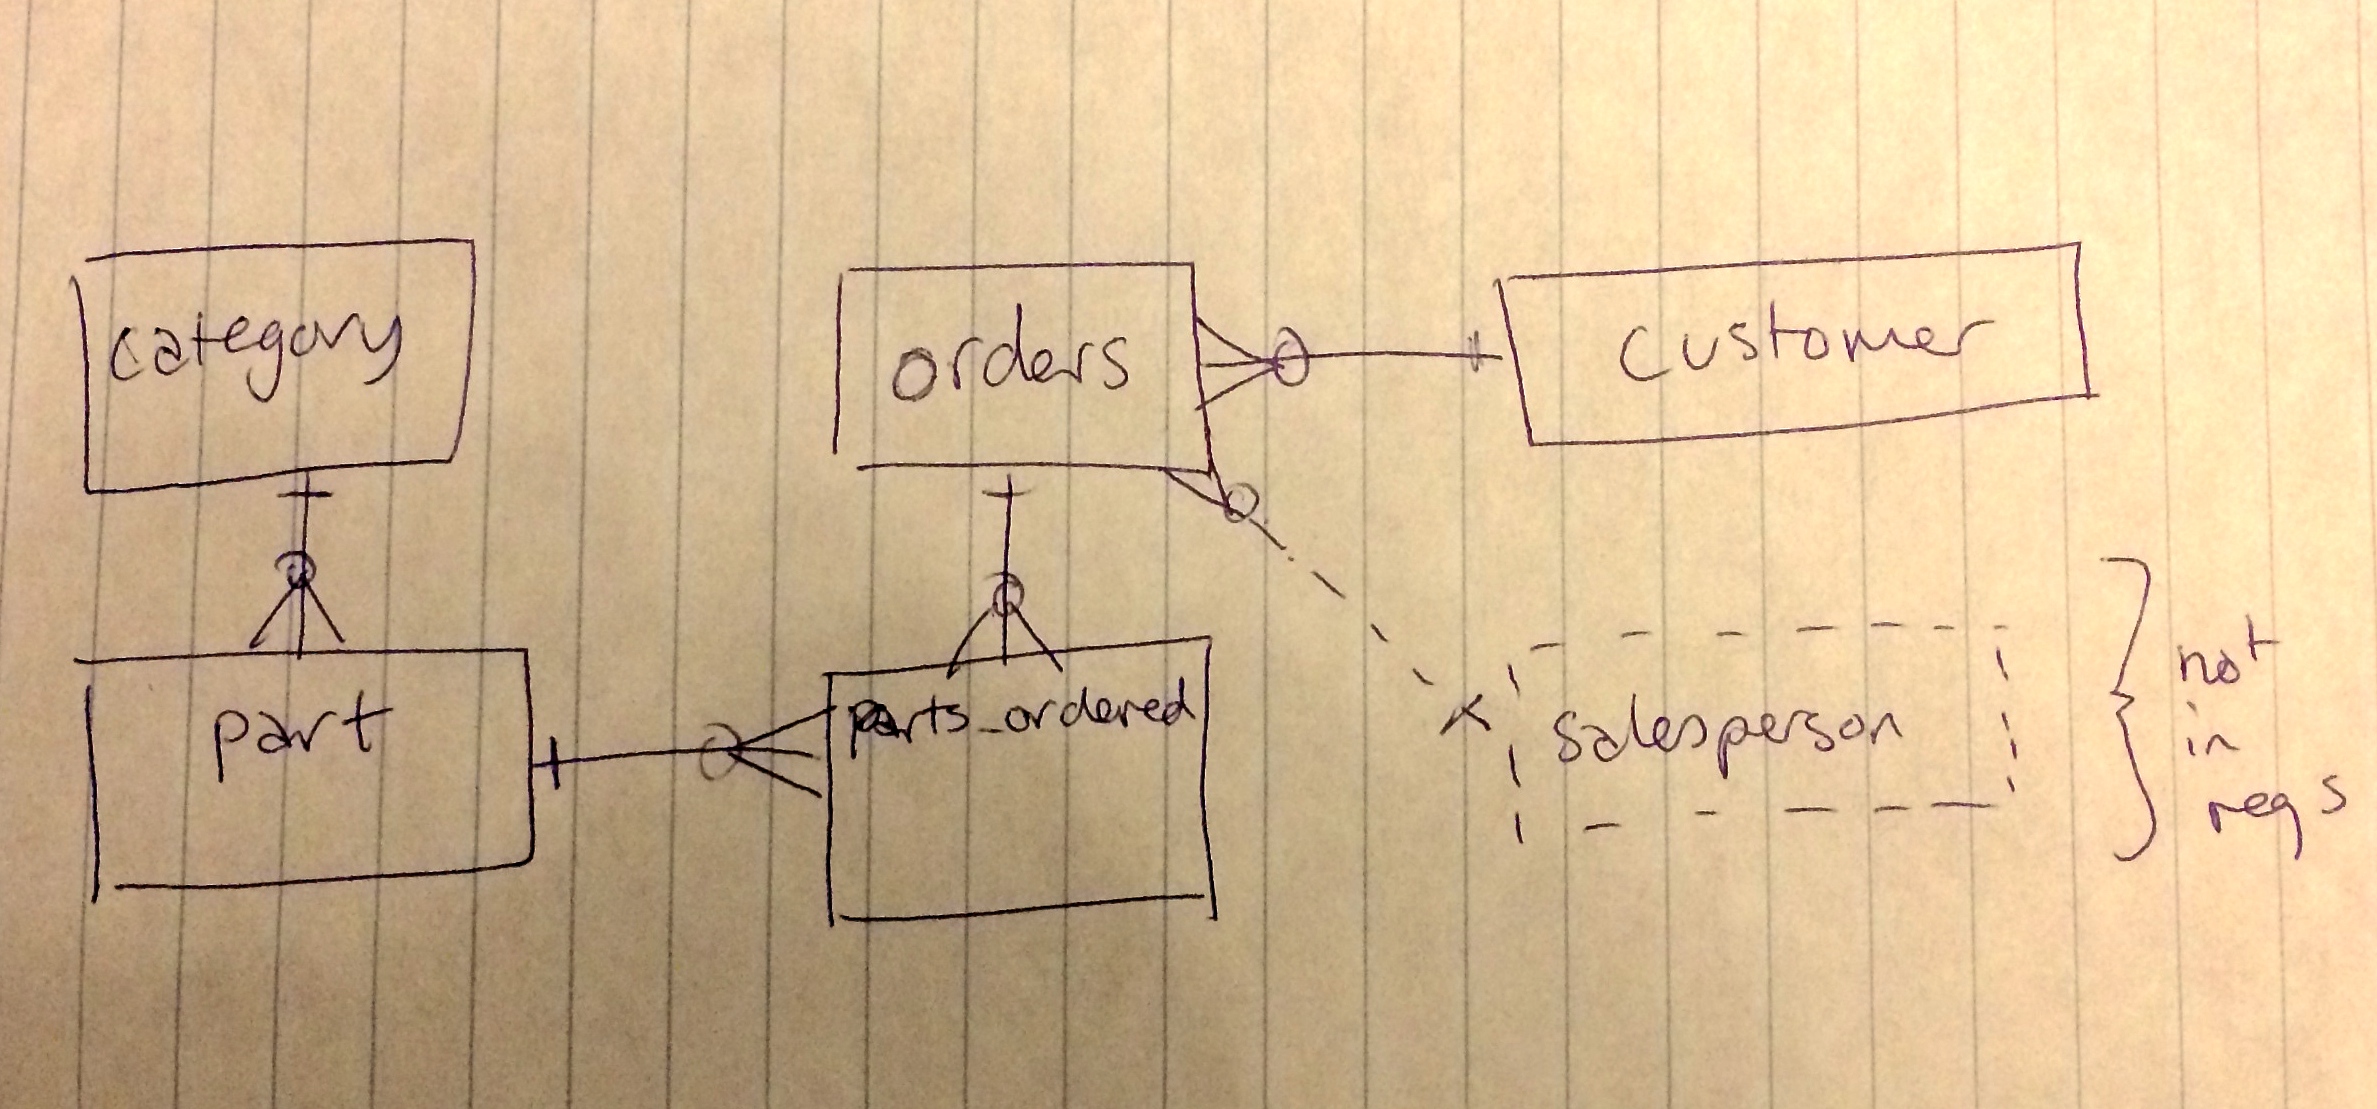 category
orders
customer
part
parts_ordered
salesperson
not
in
reqs